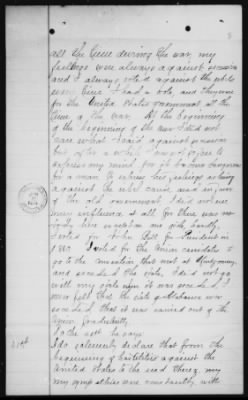 all the time during the war, my
feelings were always against secession
and I always voted against the rebels
every time I had a vote, and
for the United States government all the
time of the war. At the beginning
of the beginning of the war I did not
care what I said against secession
but after a while I was afraid to
express my mind for it became dangerous
for a man to express his feelings
against the rebel cause and in favor
of the old government I did not use
my influence at all for there was no-
body here
I voted for John Bell for President in
1860. I voted for the Union candidate to
go to the convention that met at Montgomery
and seceded the state. I did not go
with my state after it was seceded, I
never felt that the state of Alabama ever
seceded, that it was carried out of the
Union fraudulently.
To the 21st he says:
21st I do solemnly declare that from the
beginning of hostilities against the
United States to the end thereof my
my sympathies were constantly with